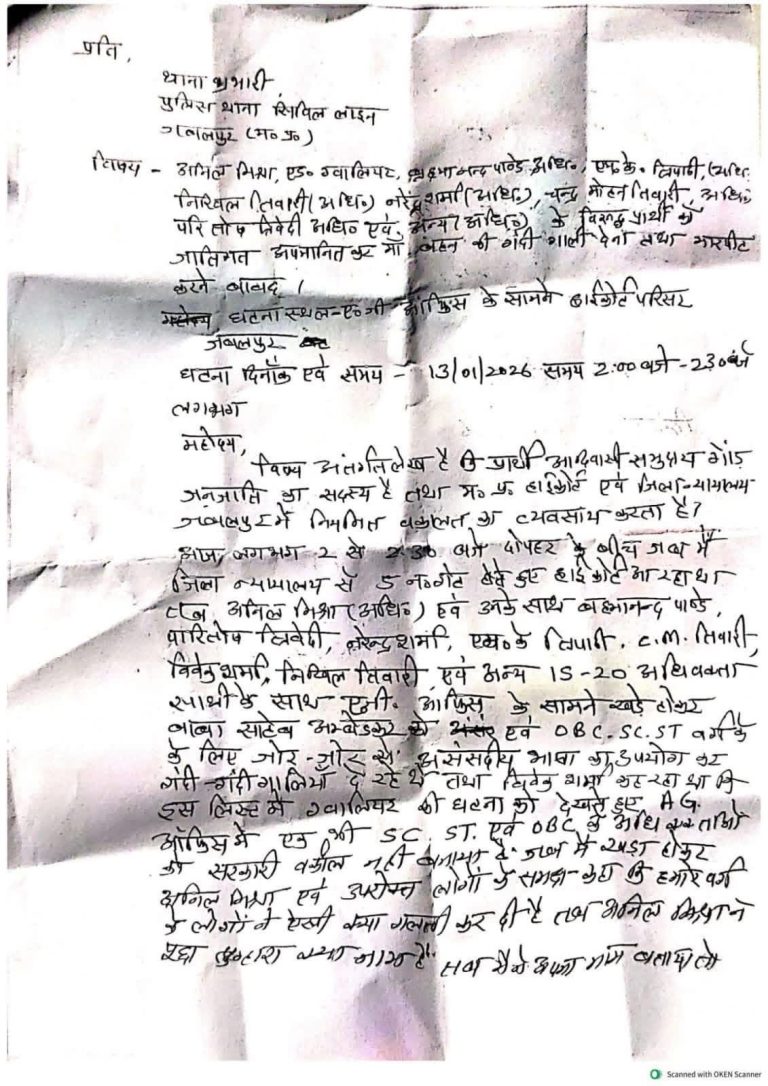 प्रति,
थाना प्रभारी
पुलिस थाना सिविल लाइन
जबलपुर (म० प्र०)
विषय - अनिल मिश्रा, एड० ग्वालियर, ब्रह्मानन्द पाण्डे अधि०, एम०के० त्रिपाठी, (अधि०
निखिल तिवारी (अधि०) नरेंद्र शर्मा (अधि०), चन्द्र मोहन तिवारी, अधि०
परितोष त्रिवेदी अधि० एवं अन्य (अधि०) के विरूद्ध प्रार्थी को
जातिगत अपमानित कर माँ बहन की गंदी गाली देना तथा मारपीट
करने बाबद ।
घटना स्थल - ए०जी ऑफिस के सामने हाईकोर्ट परिसर
जबलपुर
घटना दिनाँक एवं समय - 13/01/2026 समय 2:00 बजे - 2:30 बजे
लगभग
महोदय,
विषय अंतर्गत लेख है कि प्रार्थी आदिवासी समुदाय गोंड
जनजाति का सदस्य है तथा म० प्र० हाईकोर्ट एवं जिला न्यायालय
जबलपुर में नियमित वकालत का व्यवसाय करता है?
आज लगभग 2 से 2:30 बजे दोपहर के बीच जब मैं
जिला न्यायालय से 5 न० गेट होते हुए हाई कोर्ट आ रहा था
तब अनिल मिश्रा (अधि०) एवं उनके साथ ब्रह्मानन्द पाण्डे,
पारितोष त्रिवेदी, नरेन्द्र शर्मा, एम०के त्रिपाठी, C.M. तिवारी,
विवेक शर्मा, निखिल तिवारी एवं अन्य 15-20 अधिवक्ता
साथी के साथ एजी. ऑफिस के सामने खड़े होकर
बाबा साहेब अम्बेडकर एवं OBC. SC. ST वर्ग के
के लिए जोर-जोर से असंसदीय भाषा का उपयोग कर
गंदी-गंदी गालियाँ दे रहे थे तथा विवेक शर्मा कह रहा था कि
इस लिस्ट में ग्वालियर की घटना को देखते हुए A.G.
ऑफिस में एक भी SC. ST. एवं OBC के अधिवक्ताओं
को सरकारी वकील नहीं बनाया है जब मैं खड़ा होकर
अनिल मिश्रा एवं उपरोक्त लोगों के समक्ष कहा कि हमारे वर्ग
के लोगों ने ऐसी क्या गलती कर दी है तब अनिल मिश्रा ने
पूछा तुम्हारा क्या नाम है तब मैंने अपना नाम बताया तो
Scanned with OKEN Scanner